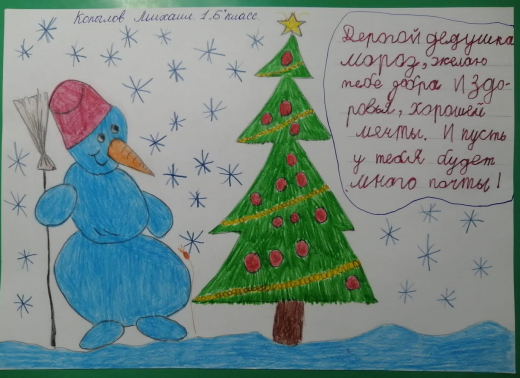 Копылов Михаил 1 "Б" класс
Дорогой дедушка
мороз, желаю
тебе добра и здо-
ровья, хорошей
мечты. И пусть
у тебя будет
много почты!